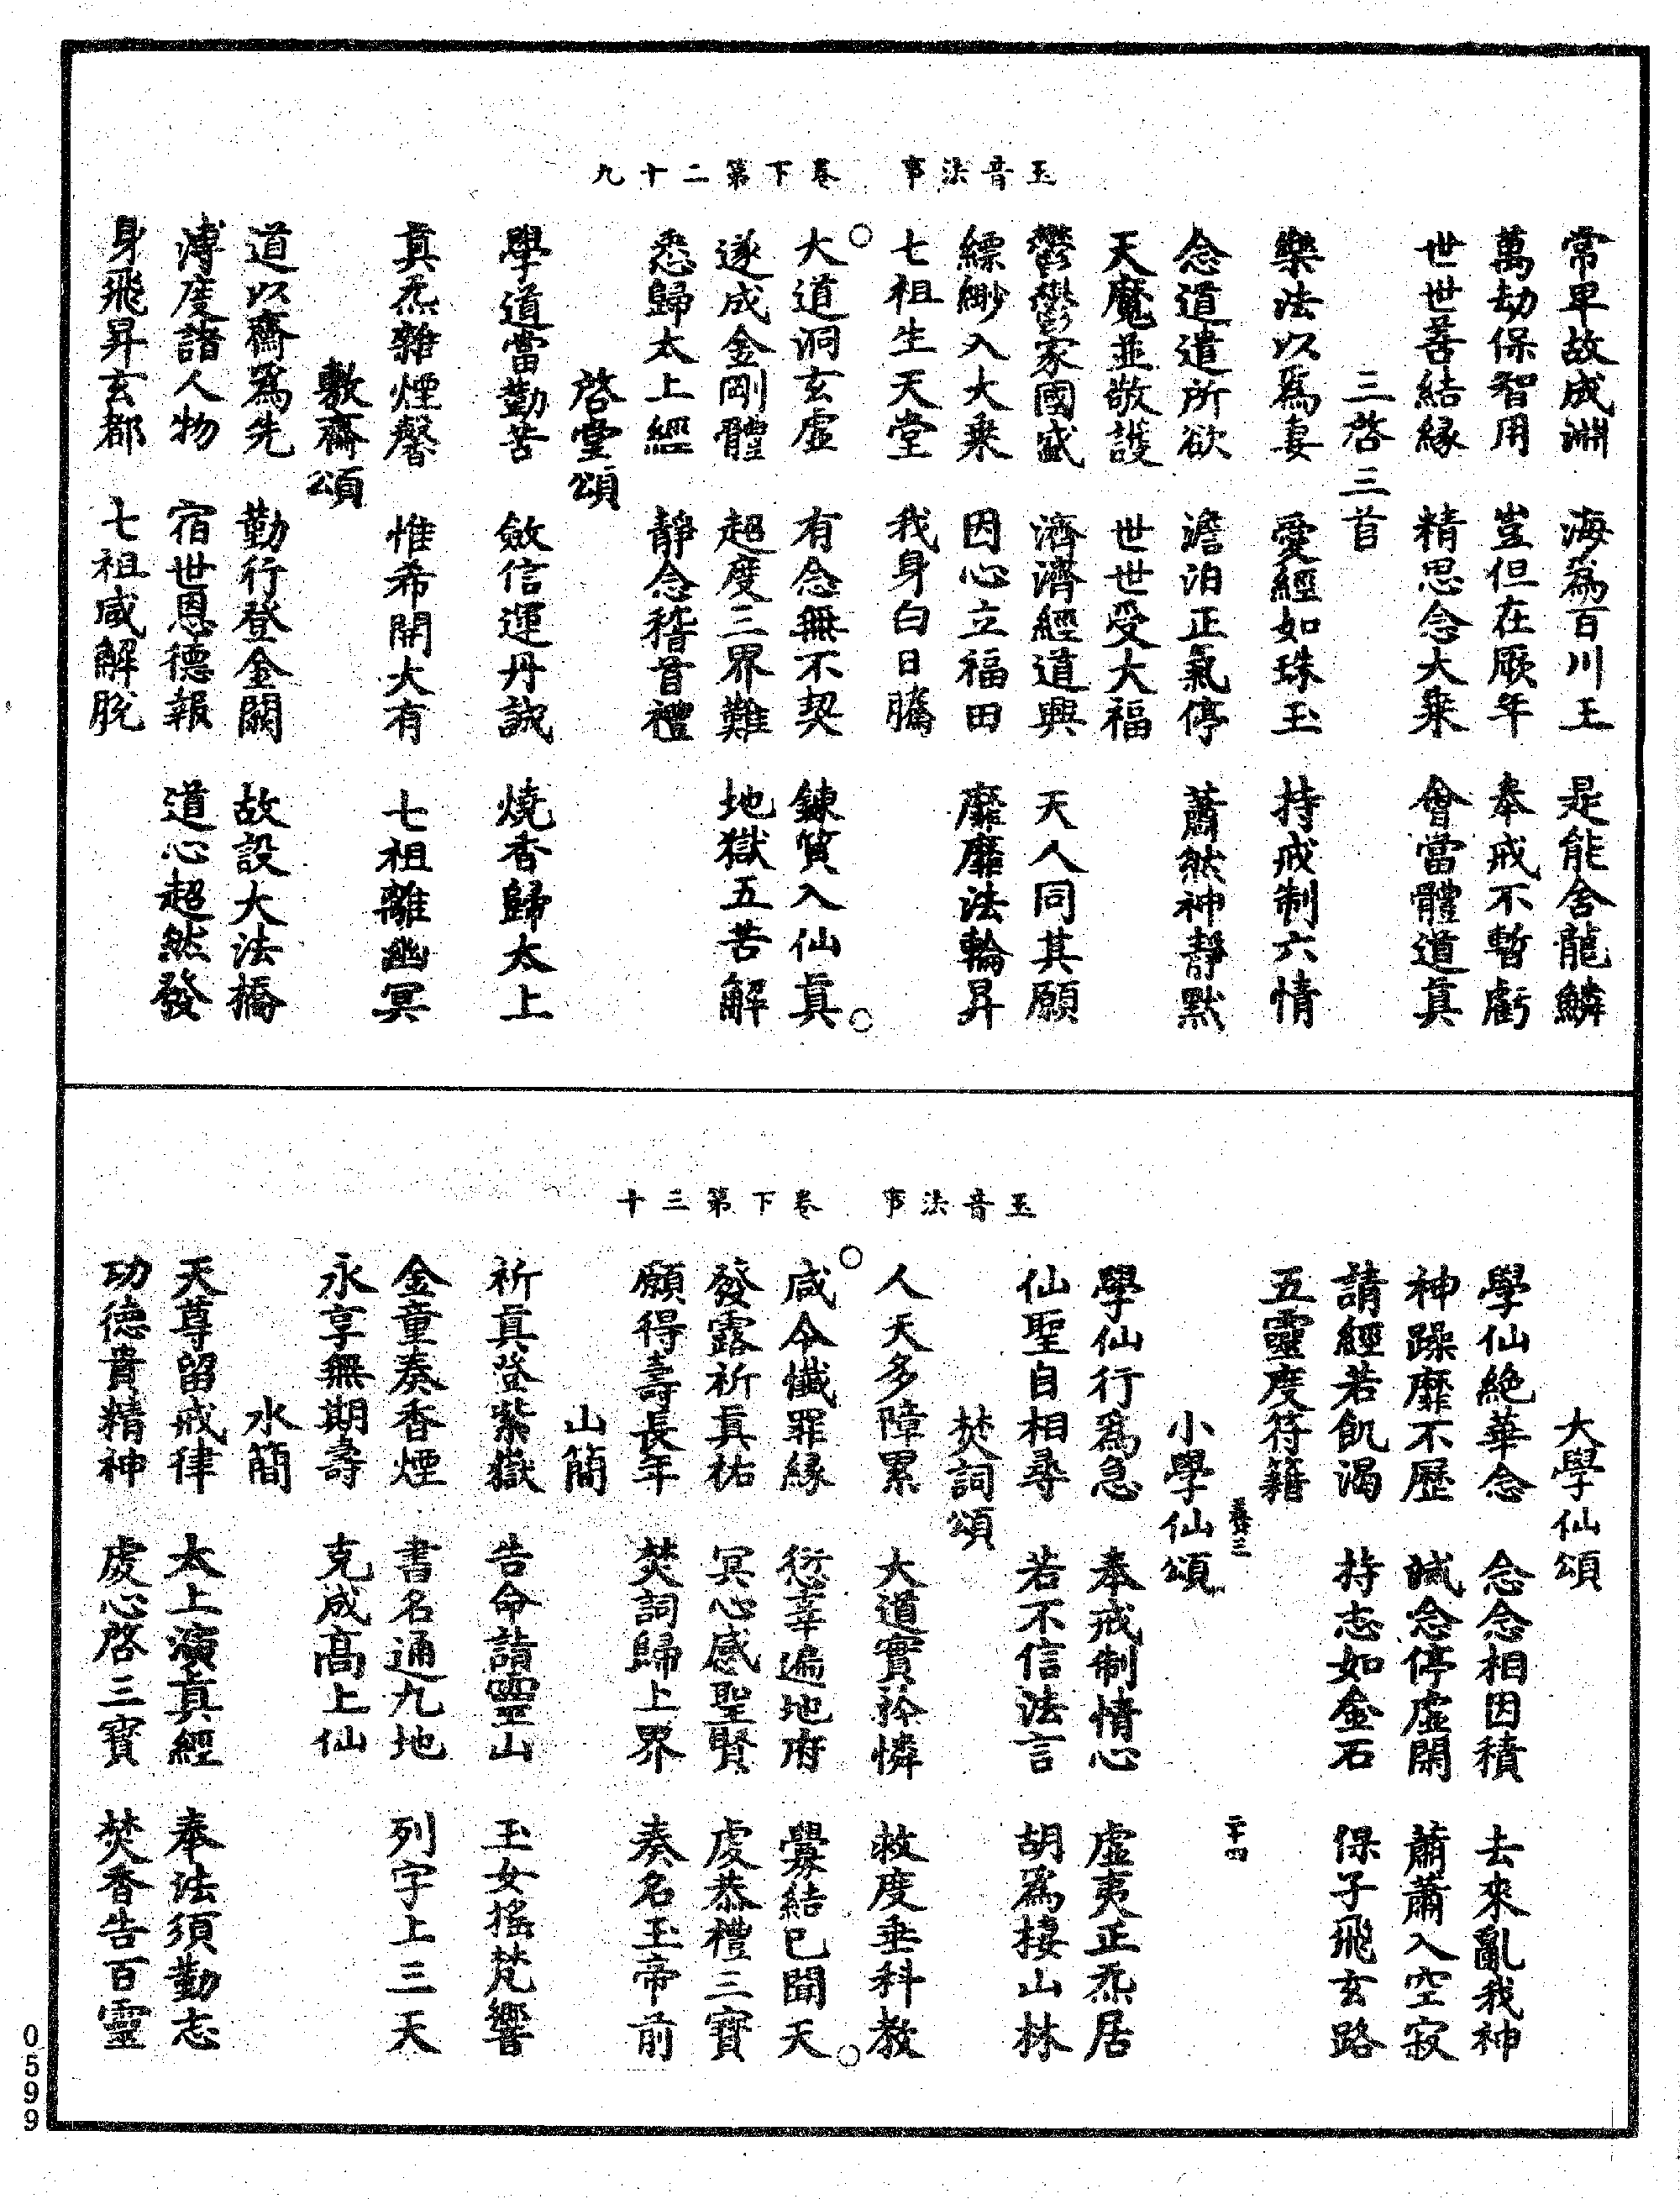 玉音法事　卷下第二十九
常卑故成淵　海為百川王　是能舍龍鱗
萬劫保智用　豈但在厥年　奉戒不暫虧
世世善結緣　精思念大乘　會當體道眞
三啓三首
樂法以爲妻　愛經如珠玉　持戒制六情
念道遣所欲　澹泊正氣停　蕭然神靜默
天魔並敬護　世世受大福
鬱鬱家國盛　濟濟經道興　天人同其願
縹緲入大乘　因心立福田　靡靡法輪昇
七祖生天堂　我身白日騰
○大道洞玄虛　有念無不契　鍊質入仙眞○
遂成金剛體　超度三界難　地獄五苦解
悉歸太上經　靜念稽首禮
啓堂頌
學道當勤苦　斂信運丹誠　燒香歸太上
眞炁雜煙馨　惟希開大有　七祖離幽冥
敷齋頌
道以齋爲先　勤行登金闕　故設大法橋
溥度諸人物　宿世恩德報　道心超然發
身飛昇玄都　七祖咸解脫
玉音法事　卷下第三十
大學仙頌
學仙絕華念　念念相因積　去來亂我神
神躁靡不歷　滅念停虛閑　蕭蕭入空寂
請經若飢渴　持志如金石　保子飛玄路
五靈度符籍
二十四
小學仙頌
學仙行爲急　奉戒制情心　虛夷正炁居
仙聖自相尋　若不信法言　胡爲棲山林
焚詞頌
人天多障累　大道實矜憐　救度垂科教
○咸令懺罪緣　愆辜遍地府　釁結已聞天○
發露祈眞祐　冥心感聖賢　虔恭禮三寶
願得壽長年　焚詞歸上界　奏名玉帝前
山簡
祈眞登紫嶽　告命請靈山　玉女搖梵響
金童奏香煙　書名通九地　列字上三天
永享無期壽　克成高上仙
水簡
天尊留戒律　太上演眞經　奉法須勤志
功德貴精神　虔心啓三寶　焚香告百靈
0599